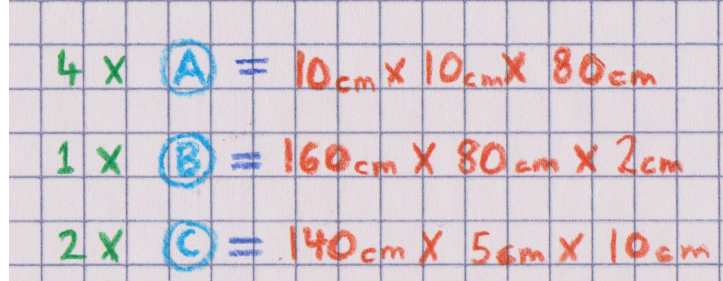 4 x A = 10cm x 10cm x 80cm
1 x B = 160cm x 80cm x 2cm
2 x C = 140cm x 5cm x 10cm